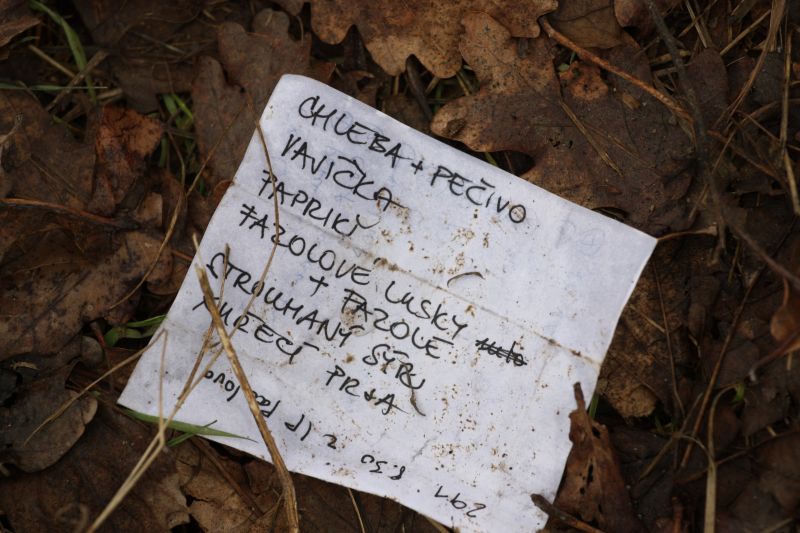 CHLEBA + PEČIVO
VAVÍČKA
PAPRIKY
FAZOLOVÉ LUSKY
+ FAZOLE
STROUHANÝ SÝRU
KUŘECÍ PRSA
291. 8.30 z